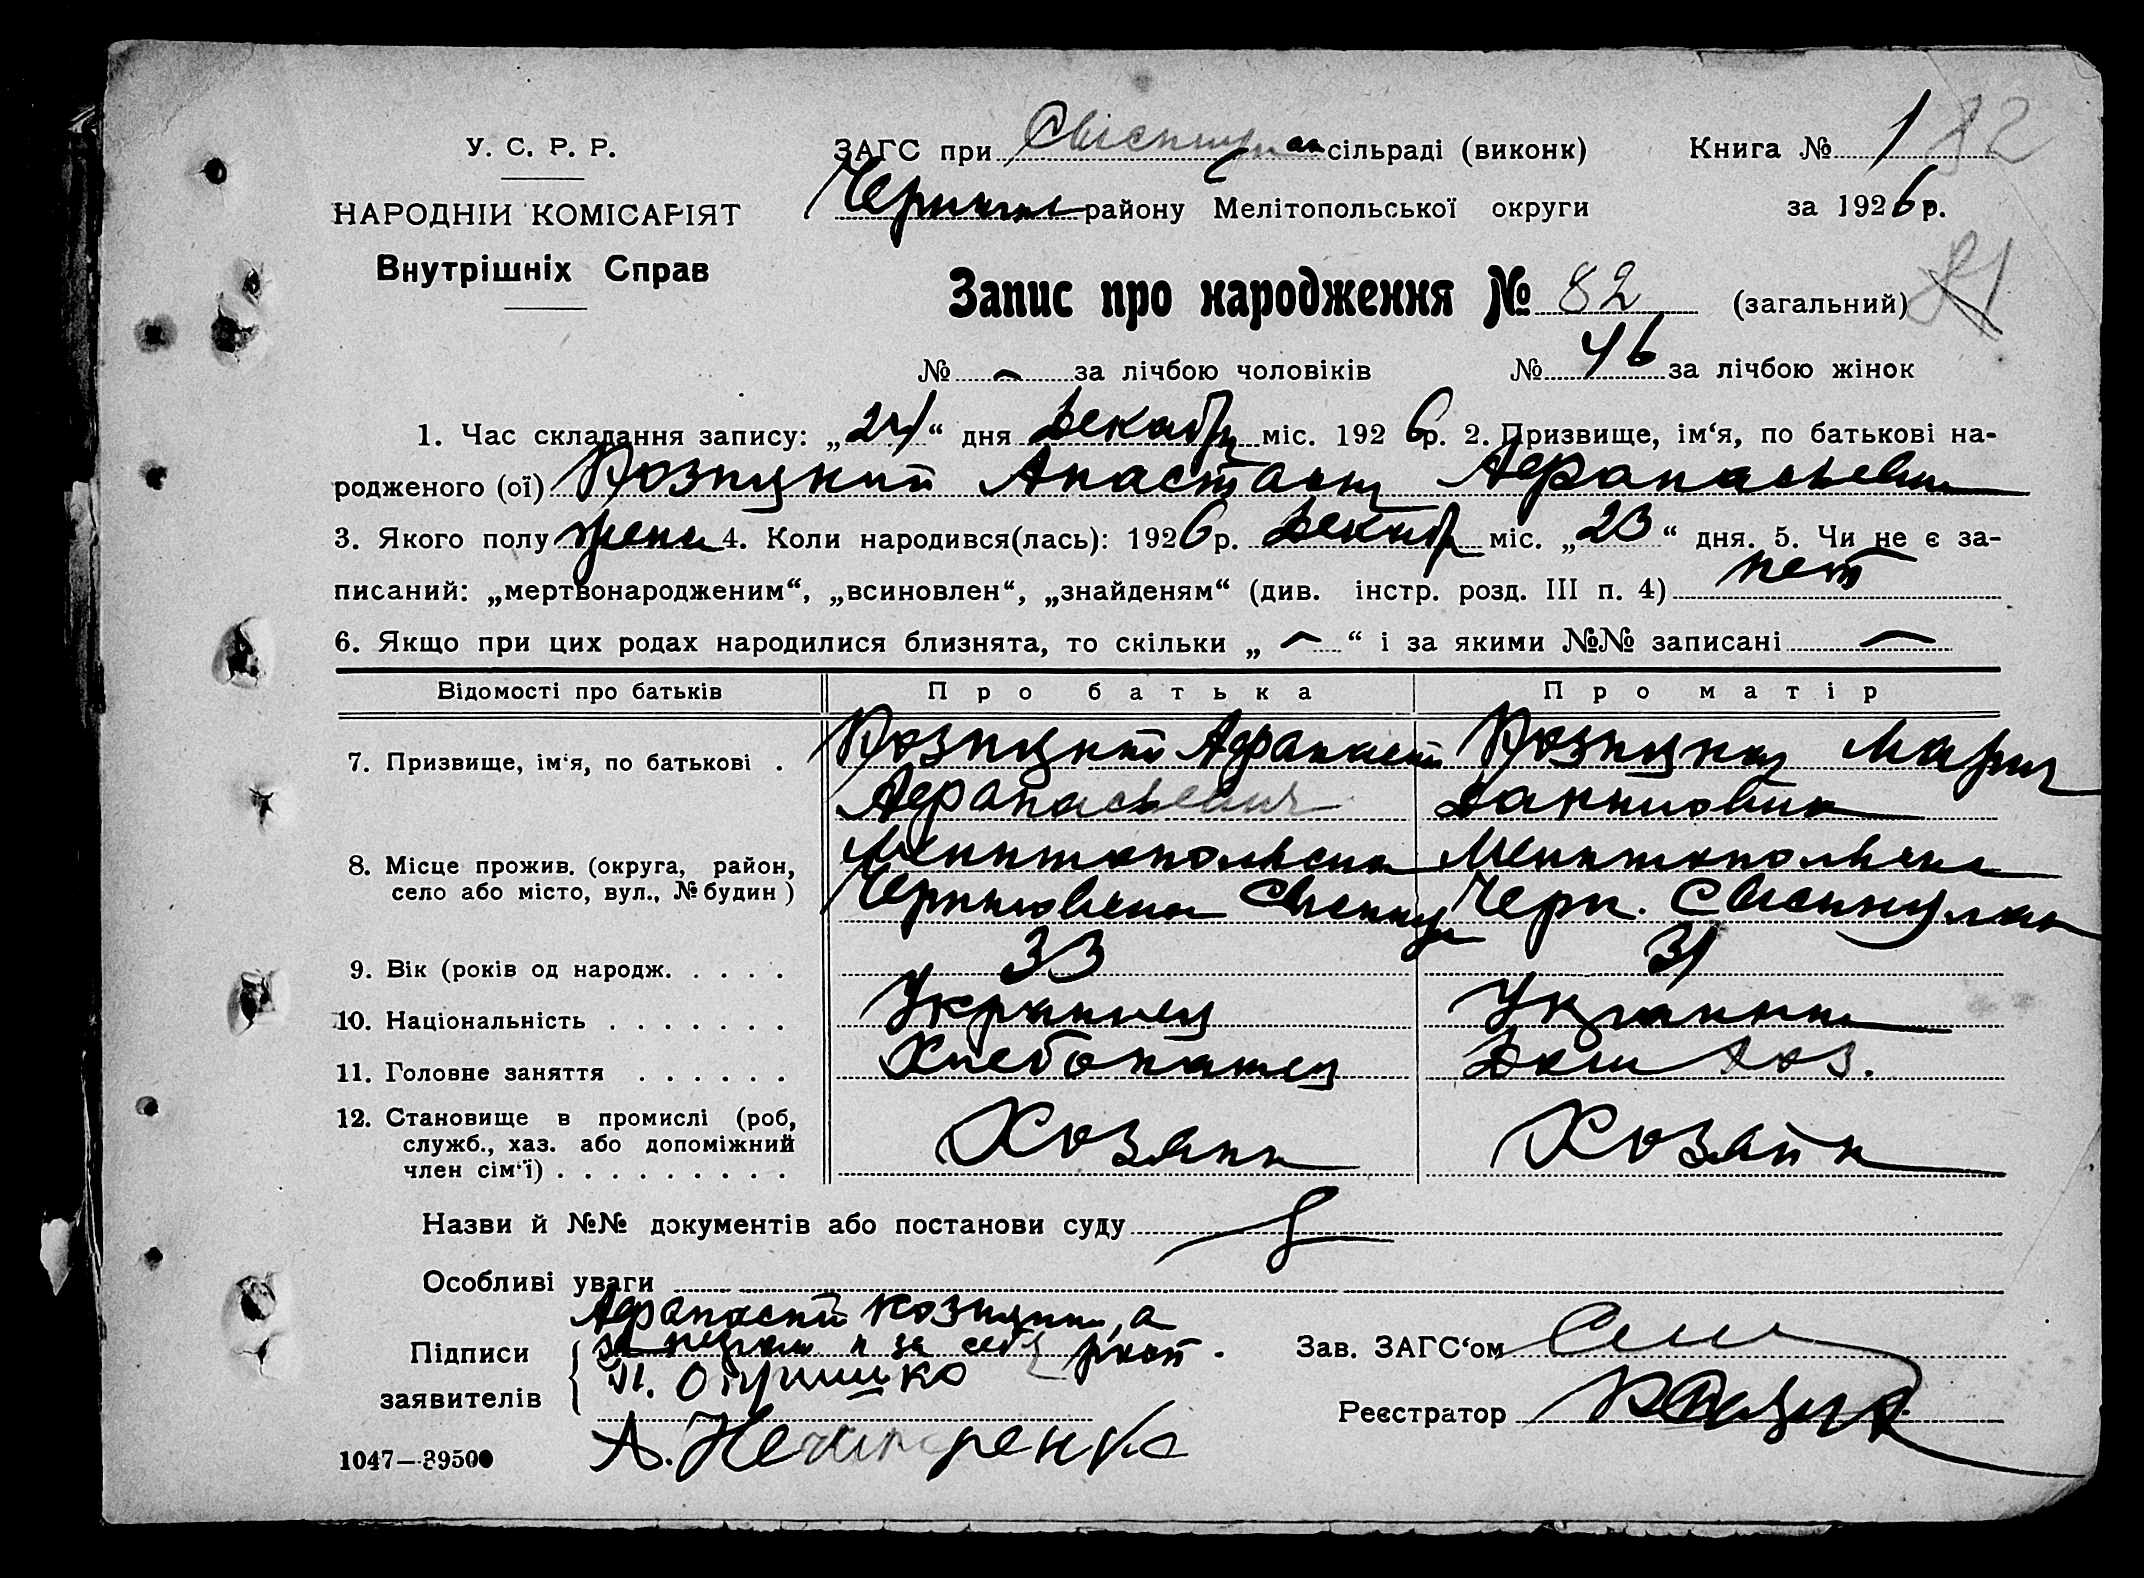 У. С. Р. Р.
НАРОДНІЙ КОМІСАРІЯТ
Внутрішніх Справ
ЗАГС при сільраді (виконк) Книга № 1 82
району Мелітопольської округи за 1926 р.
Запис про народження № 82 (загальний) 81
№ за лічбою чоловіків № 46 за лічбою жінок
1. Час складання запису: „24“ дня Декабр міс. 1926 р. 2. Призвище, ім‘я, по батькові на-
родженого (ої) Козицкий Анастасия Афанасьевна
3. Якого полу жен 4. Коли народився(лась): 1926 р. Декабр міс. „23“ дня. 5. Чи не є за-
писаний: „мертвонародженим“, „всиновлен“, „знайденям“ (див. інстр. розд. III п. 4) нет
6. Якщо при цих родах народилися близнята, то скільки „ — “ і за якими №№ записані —
Відомості про батьків Про батька Про матір
7. Призвище, ім‘я, по батькові . Козицкий Афанасий Козицкая Мария
Афанасьевич Даниловна
8. Місце прожив. (округа, район, Мелитопольска Мелитопольска
село або місто, вул., № будин) Черниговска Черн.
9. Вік (років од народж. . . . . 33 31
10. Національність . . . . . . . Украинец Украинка
11. Головне заняття . . . . . . Хлебопашец Дом хоз.
12. Становище в промислі (роб,
служб., хаз. або допоміжний Хозяин Хозяйк
член сім‘ї) . . . . . . . . .
Назви й №№ документів або постанови суду
Особливі уваги
Афанасий Козицкий, а
Підписи за и за себя Зав. ЗАГС‘ом
заявителів Реєстратор
1047—39500